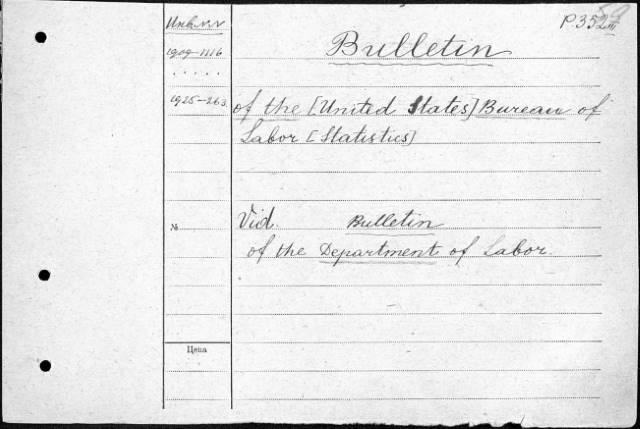 P352
Bulletin
of the [United States] Bureau of
Labor [Statistics]
Vid. Bulletin
of the Department of Labor.
1909-1116
.....
1925-263.
№
Цена